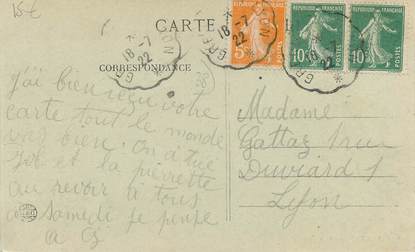 15€
CARTE
CORRESPONDANCE
18-7
22
18-7
22
18-7
22
RÉPUBLIQUE FRANÇAISE
5c
POSTES
RÉPUBLIQUE FRANÇAISE
10c
POSTES
RÉPUBLIQUE FRANÇAISE
10c
POSTES
j'ai bien reçu votre
carte tout le monde
va bien. On a tué
et la pierrette
au revoir à tous
Samedi je pense
Madame
Gattaz 1 rue
Duviard 1
Lyon